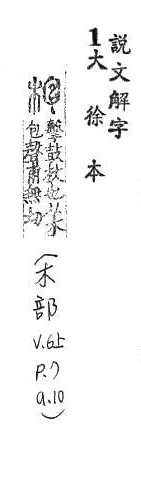 說文解字
1大徐本
枹
擊鼓杖也从木
包聲甫無切
(木部 V.6上 P.7 a.10)